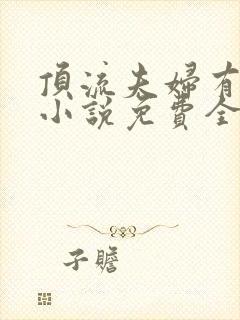 頂流夫婦有
小説免費全
子瞻